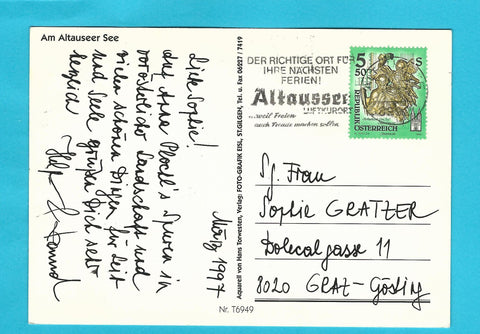 Am Altauseer See
Liebe Sophie!
Auf Anna Plochl's Spuren in
vorösterlicher Landschaft und
vielen schönen Dingen für Leib
und Seele grüßen Dich sehr
herzlich
März 1997
Aquarell von Hans Torwesten, Verlag: FOTO-GRAFIK EISL, ST.GILGEN, Tel. u. Fax 06227 / 7419
Nr. T6949
DER RICHTIGE ORT FÜR
IHRE NÄCHSTEN
FERIEN!
Altaussee
LUFTKURORT
...weil Ferien
auch Freude machen sollen
5 S
50
REPUBLIK
ÖSTERREICH
Sg. Frau
Sophie GRATZER
Dolecalgasse 11
8020 GRAZ-Gösting